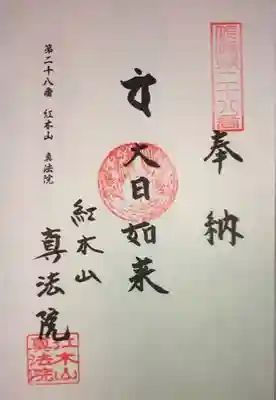 奉納
大日如来
紅本山
真法院
第二十八番 紅本山 真法院
紅本山
真法院